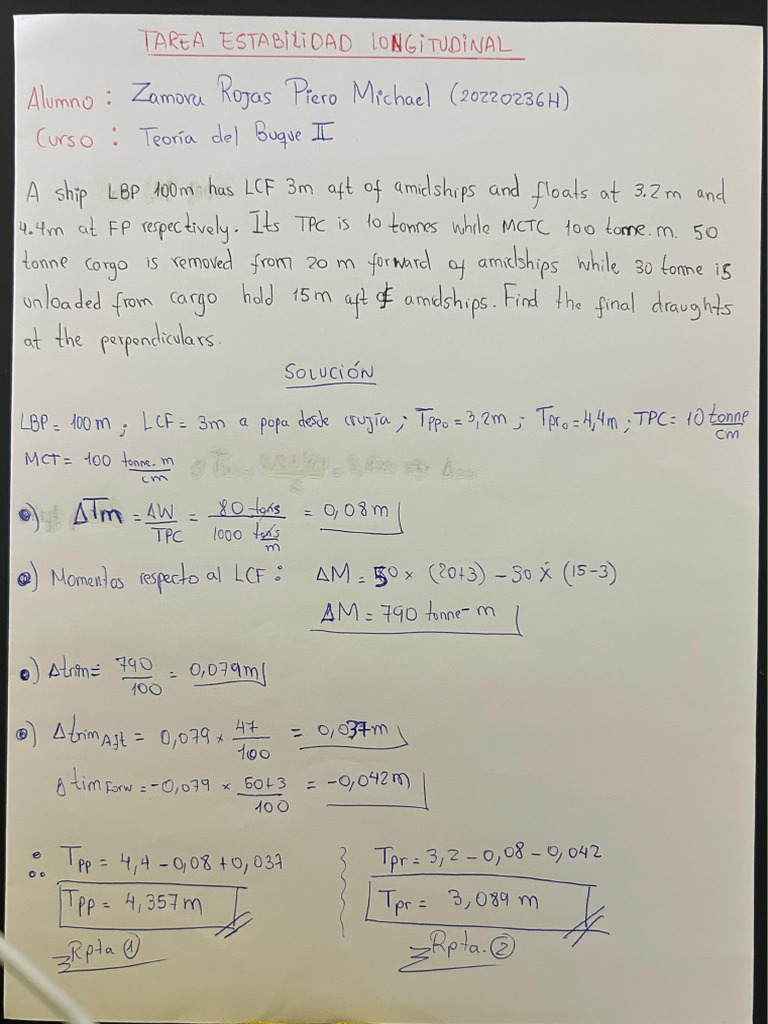 TAREA ESTABILIDAD LONGITUDINAL
Alumno : Zamora Rojas Piero Michael (20220236H)
Curso : Teoría del Buque II
A ship LBP 100m has LCF 3m aft of amidships and floats at 3.2m and
4.4m at FP respectively. Its TPC is 10 tonnes while MCTC 100 tonne.m. 50
tonne cargo is removed from 20 m forward of amidships while 30 tonne is
unloaded from cargo hold 15m aft of amidships. Find the final draughts
at the perpendiculars.
SOLUCIÓN
LBP = 100m ; LCF = 3m a popa desde crujía ; Tppo = 3,2m ; Tpro = 4,4m ; TPC = 10 tonne/cm
MCT = 100 tonne.m/cm
•) ΔTm = ΔW/TPC = 80 tons/1000 tons/m = 0,08m
•) Momentos respecto al LCF : ΔM = 50 × (20+3) - 30 × (15-3)
ΔM = 790 tonne-m
•) Δtrim = 790/100 = 0,079m
•) Δtrim Aft = 0,079 × 47/100 = 0,037m
Δtim Forw = -0,079 × 50+3/100 = -0,042m
∴ Tpp = 4,4 - 0,08 + 0,037
Tpp = 4,357m
Rpta ①
Tpr = 3,2 - 0,08 - 0,042
Tpr = 3,089 m
Rpta. ②